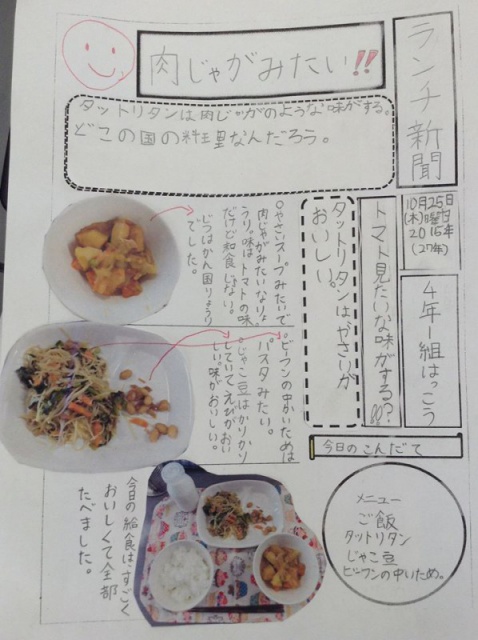 ランチ新聞
肉じゃがみたい!!
タットリタンは肉じゃがのような味がする。
どこの国の料理なんだろう。
10月25日
(木)曜日
2015年
(27年)
4年1組はっこう
トマト見たいな味がする?!!
タットリタンはやさいが
おいしい。
○やさいスープみたいで
肉じゃがみたいななり。
うり。味はトマトの味
だけど和食じゃない。
じつはかん国りょうり
でした。
○ビーフンの中かいためは
パスタみたい。
○じゃこ豆はかりかり
していてえびがおい
しい。味がおいしい。
今日のこんだて
メニュー
ご飯
タットリタン
じゃこ豆
ビーフンの中いため。
今日の給食は、すごく
おいしくて全部
たべました。